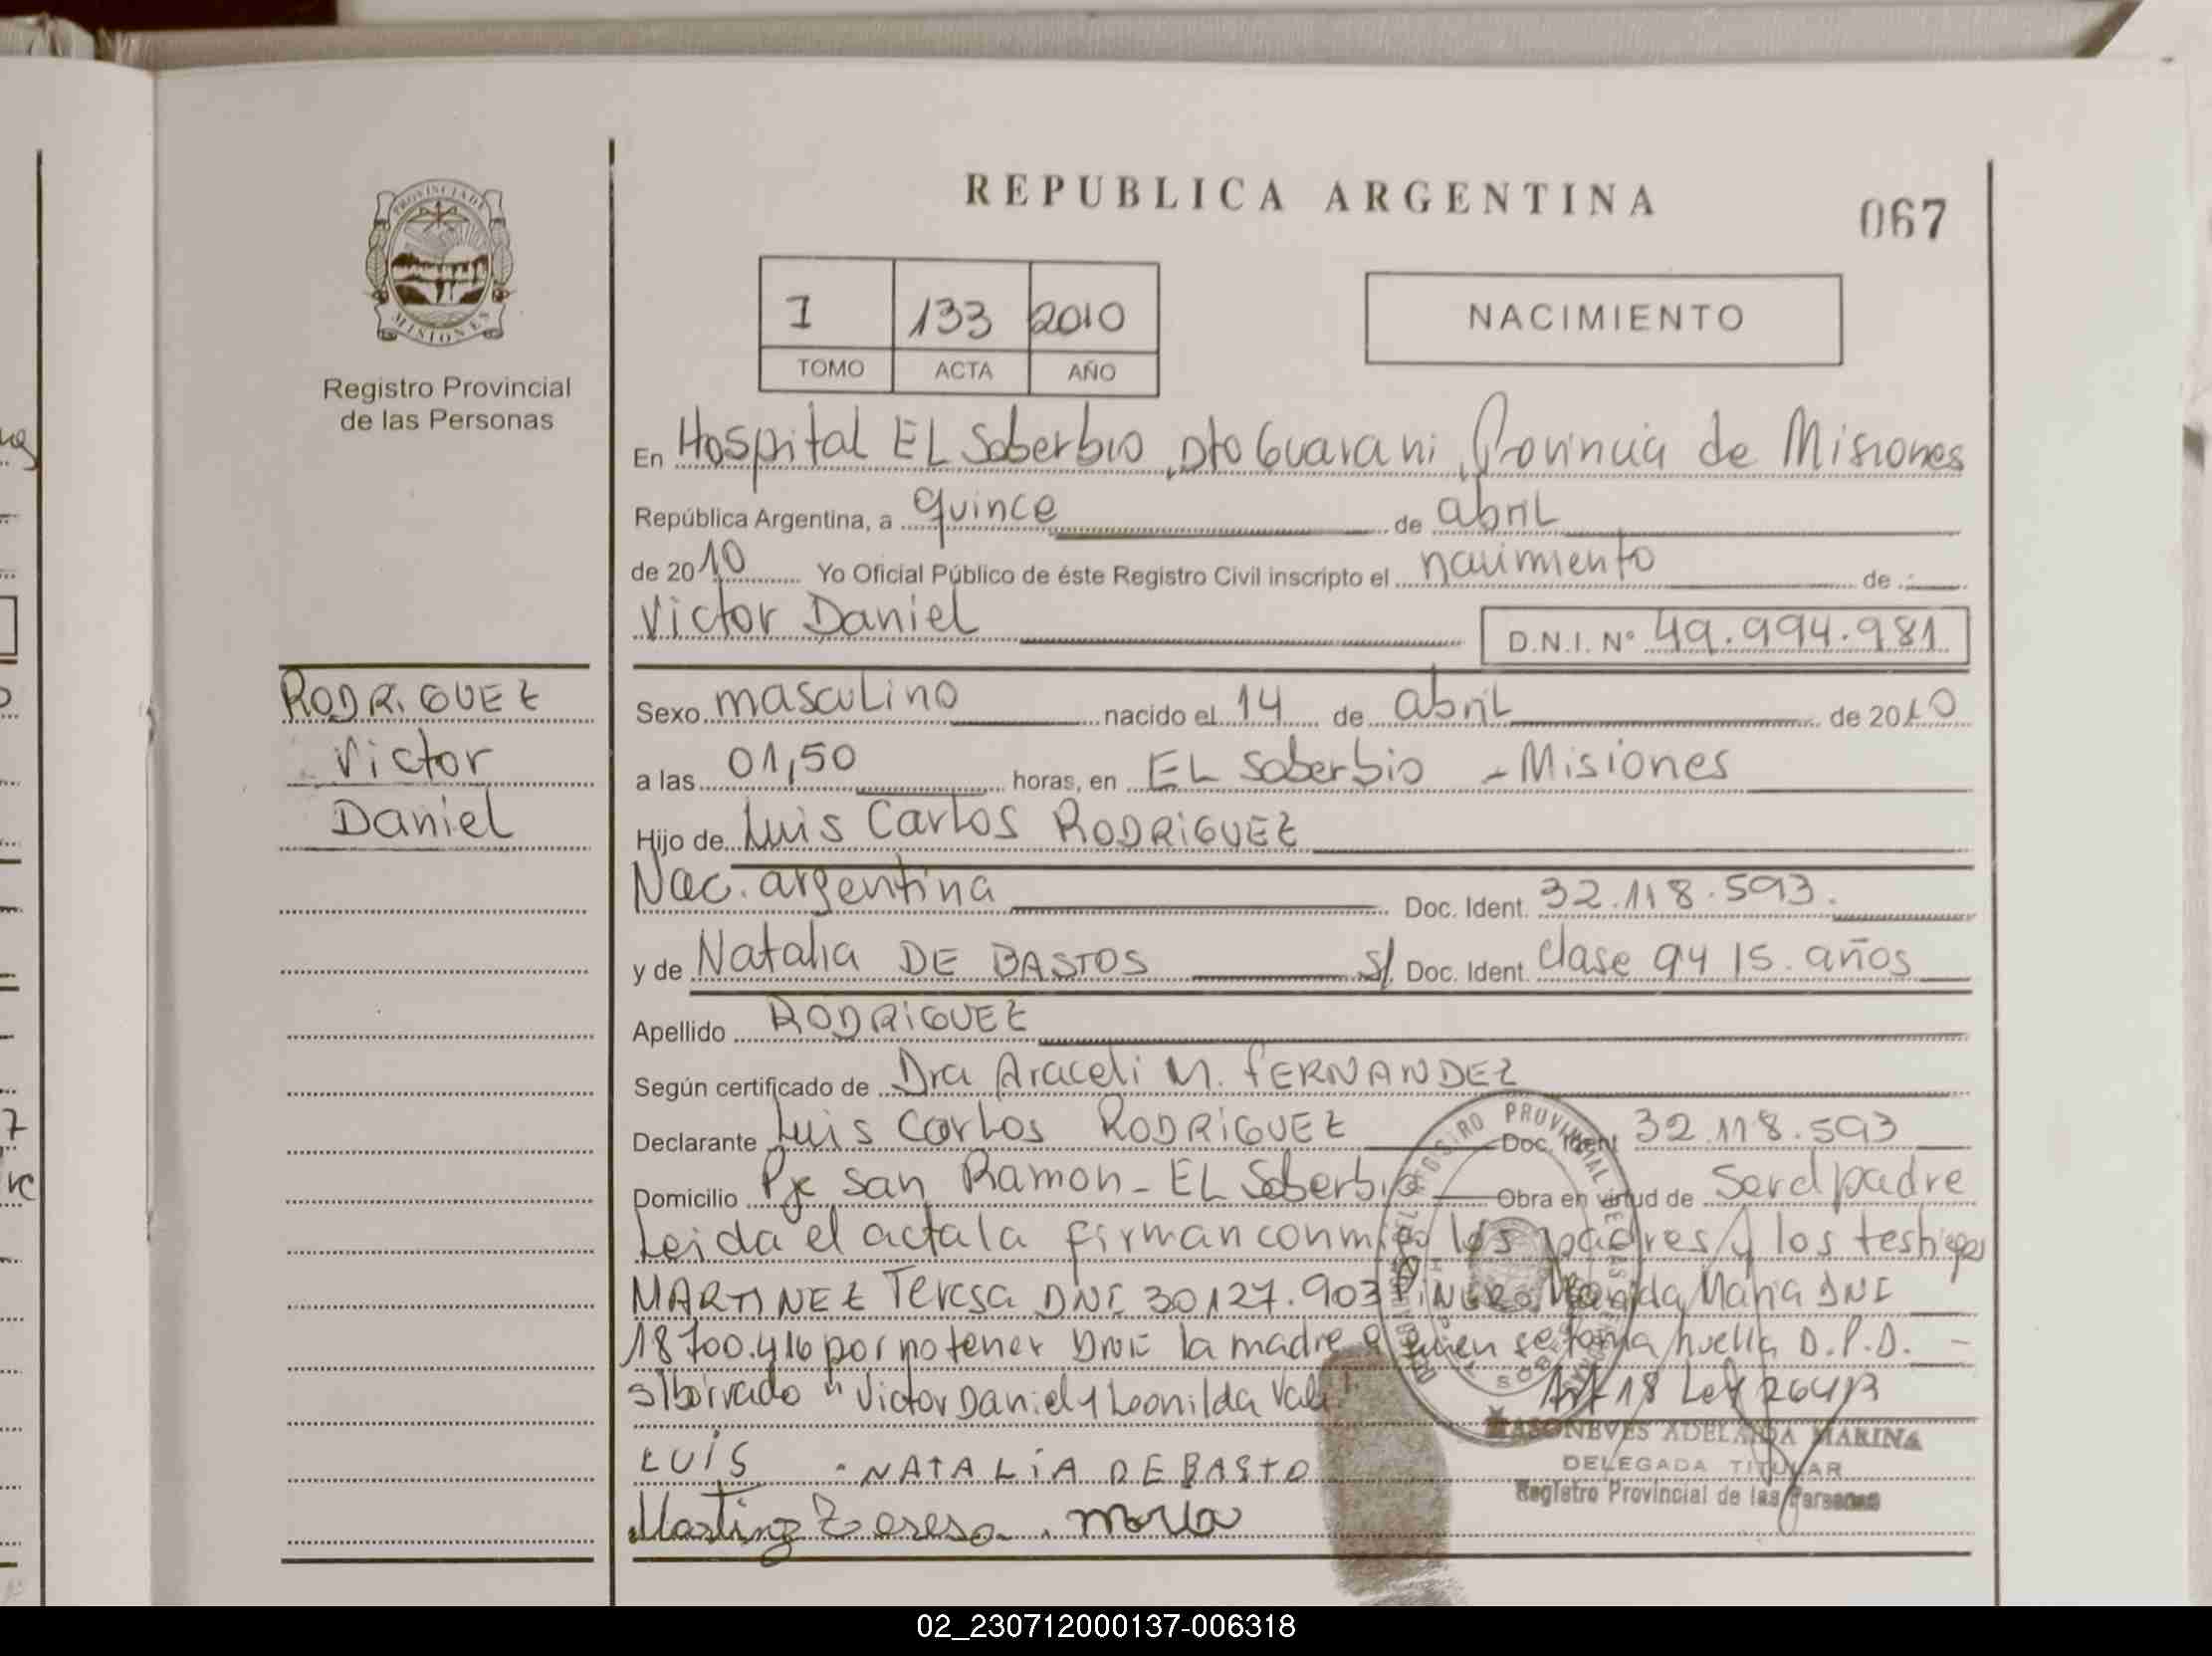 REPUBLICA ARGENTINA
067
PROVINCIA DE
MISIONES
Registro Provincial
de las Personas
I 133 2010
TOMO ACTA AÑO
NACIMIENTO
En Hospital EL Soberbio, Dto Guarani, Provincia de Misiones
República Argentina, a quince de abril
de 2010 Yo Oficial Público de éste Registro Civil inscripto el nacimiento de
Victor Daniel
D.N.I. Nº 49.994.981
RODRIGUEZ
Victor
Daniel
Sexo masculino nacido el 14 de abril de 2010
a las 01,50 horas, en EL Soberbio - Misiones
Hijo de Luis Carlos RODRIGUEZ
Nac. argentina Doc. Ident. 32.118.593.
y de Natalia DE BASTOS s/ Doc. Ident. clase 94 15 años
Apellido RODRIGUEZ
Según certificado de Dra Araceli M. FERNANDEZ
Declarante Luis Carlos RODRIGUEZ Doc. Ident 32.118.593
Domicilio Pje San Ramon - EL Soberbio Obra en virtud de Ser el padre
Leida el acta la firman conmigo los padres y los testigos
MARTINEZ Teresa DNI 30127.903 Maria DNI
18700.416 por no tener DNI la madre a quien se toma huella D.P.D. -
s/borrado " Victor Daniel y Leonilda Vale".
Art 18 Ley 26413
ADELAIDA MARINA
DELEGADA TITULAR
Registro Provincial de las Personas
LUIS NATALIA DEBASTO
Martinez Teresa. Maria
02_230712000137-006318